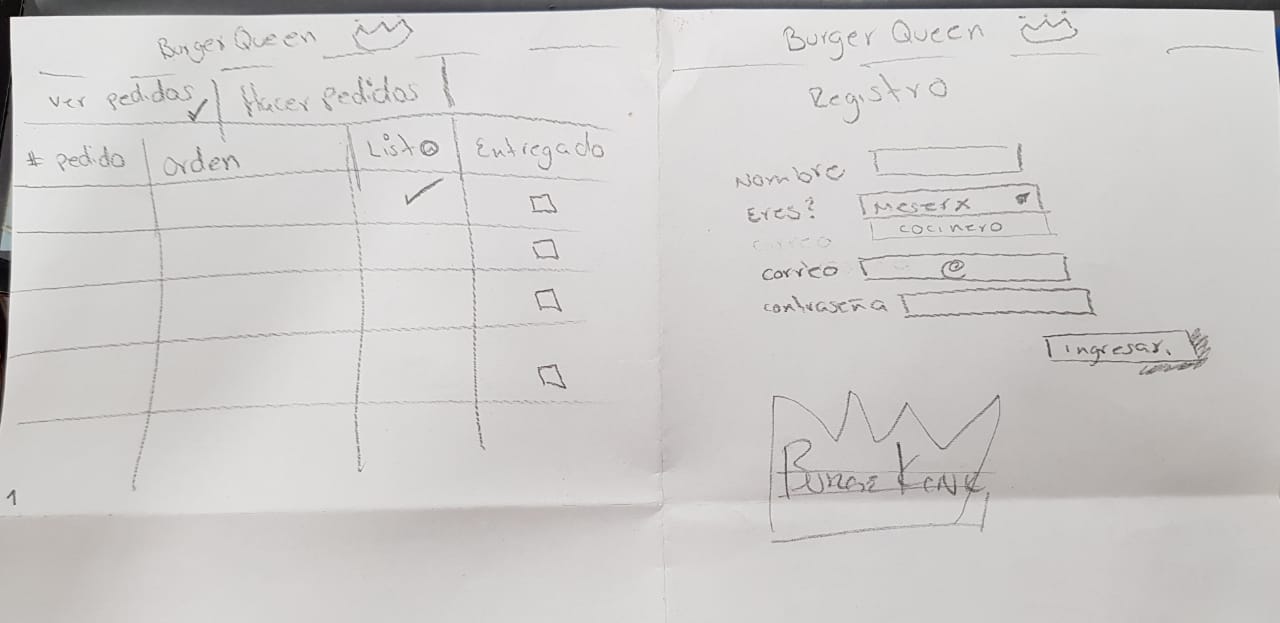 Burger Queen
ver pedidos Hacer pedidos
# pedido orden Listo Entregado
1
Burger Queen
Registro
Nombre
Eres? Meserx
cocinero
correo
correo @
contraseña
ingresar.